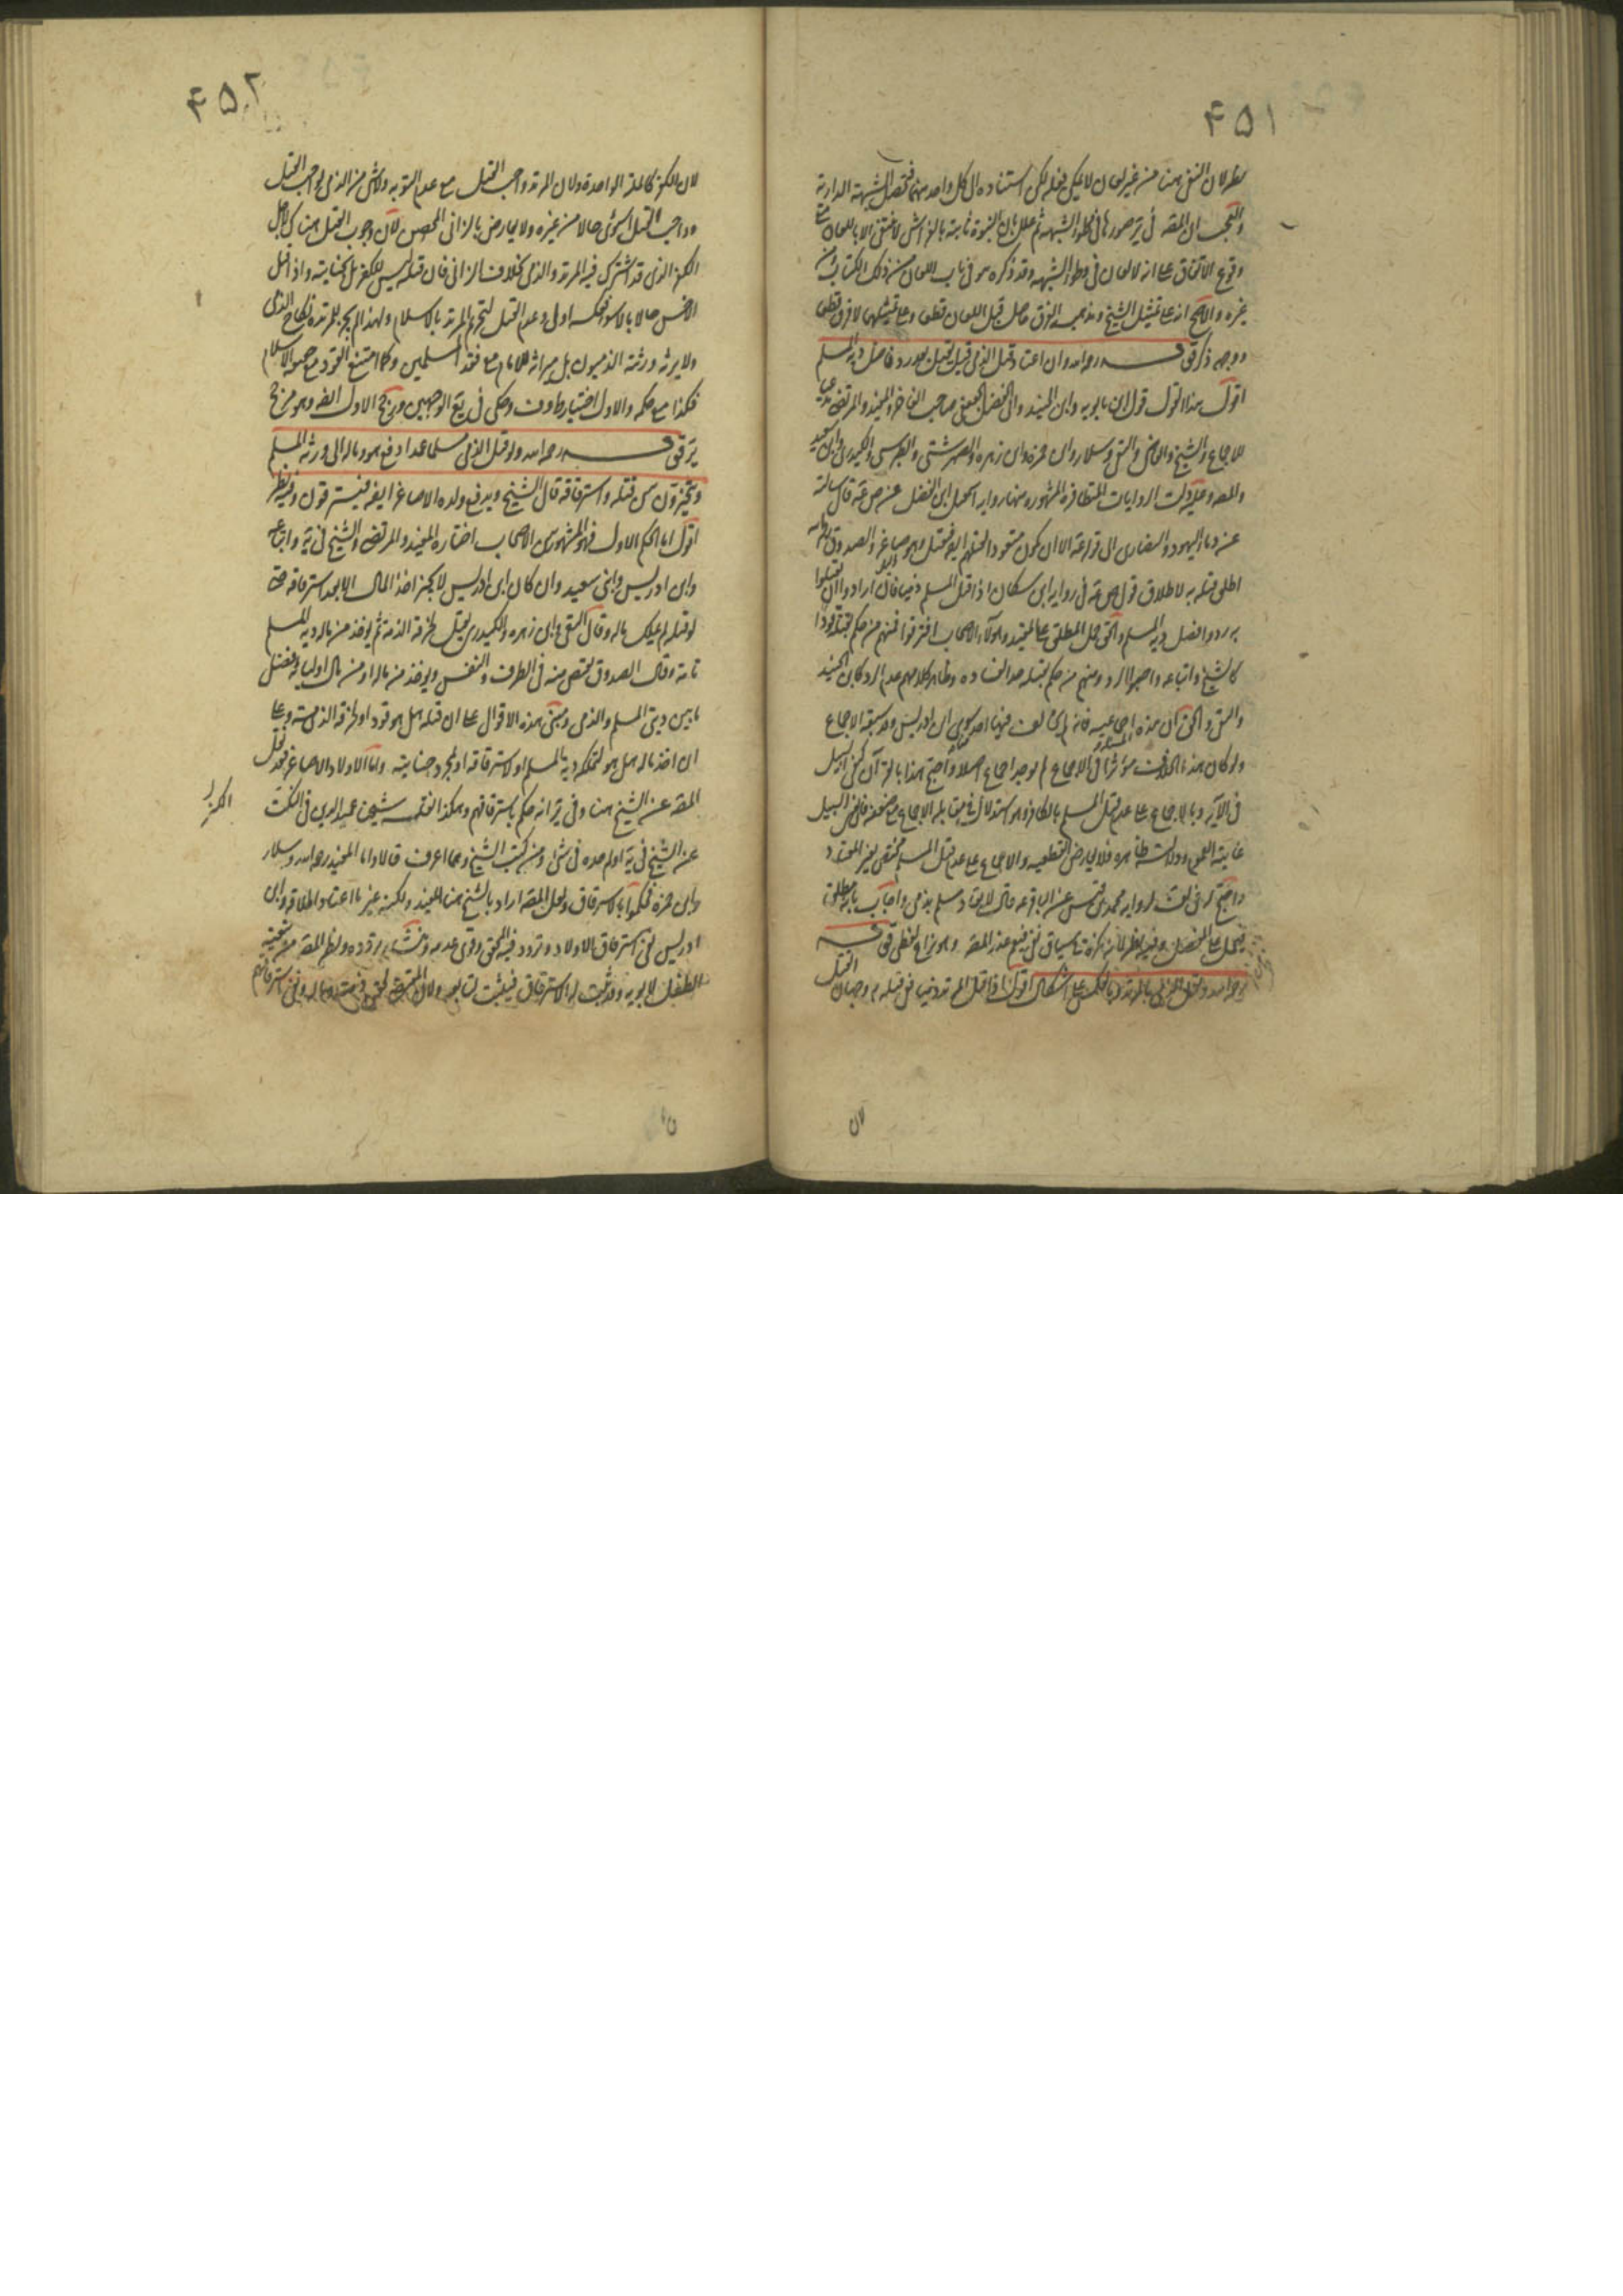 ۴۵۱
نظر لان النفى هنا من غير لعان لا يمكن فعله لكن استناده الى كل واحد منهما فتحصل الشبهة الدارئة
والعجب ان المصنف فى صور هنا فى الشبهة ثم علل بان البنوة ثابتة بالفراش لا تنتفى الا باللعان مع
وقوع الاتفاق على انه لا لعان فى وطء الشبهة وقد ذكره هو فى باب اللعان من ذلك الكتاب ومن
غيره والاصح انه على تمثيل الشيخ ومذهبه الفرق حاصل قبل اللعان قطعى وعلى تمثيلهما لا فرق قطعى
ووجهه ذكر قوله رحمه الله وان اعتاد قتل الذمى قيل يقتل بعد رد فاضل دية المسلم
اقول هذا القول قول ابن بابويه وابن الجنيد وابى الفضل الجعفى صاحب الفاخر والمفيد والمرتضى مدعيا
للاجماع والشيخ والقاضى والتقى وسلار وابن حمزة وابن زهرة والصهرشتى والطبرسى والكيدرى وابن سعيد
والمصنف وعليه دلت الروايات المتظافرة المشهورة منها رواية اسمعيل بن الفضل عن ص ع قال سالته
عن دماء اليهود والنصارى الى قوله ع الا ان يكون متعودا لقتلهم فيقتل وهو صاغر والصدوق
اطلق قتله به لاطلاق قول ص ع فى رواية ابن مسكان اذا قتل المسلم ذميا فان ارادوا ان يقتلوا
به ردوا فضل دية المسلم والحق حمل المطلق على المقيد وهؤلاء الاصحاب افترقوا فمنهم من حكم بقتله قودا
كالشيخ واتباعه واوجبوا الرد ومنهم من حكم بقتله حدا لفساده وظاهر كلامهم عدم الرد كابن الجنيد
والتقى والحق ان هذه اجماعية فانه لم يخالف فيها احد سوى ابن ادريس وقد سبقه الاجماع
ولو كان هذا الخلاف مؤثرا فى الاجماع لم يوجد اجماع اصلا واحتج هذا بالقرآن كنفى السبيل
فى الآية وبالاجماع على عدم قتل المسلم بالكافر وهو استدلال فى مقابلة الاجماع مع ضعفه فان نفى السبيل
غايته العموم ودلالته ظاهرة فلا يعارض القطعية والاجماع على عدم قتل المسلم مختص بغير المعتاد
واحتج له فى المختلف برواية محمد بن قيس عن الباقر ع قال لا يقاد مسلم بذمى واجاب بانه مطلق
فيحمل على المفصل وفيه نظر لانه نكرة فى سياق نفى فيعم عند المصنف وهو نزاع لفظى قوله
رحمه الله ويقتل الذمى بالمرتد وبالعكس على اشكال اقول اذا قتل المرتد ذميا ففى قتله به وجهان القتل
لان
۴۵۲
لان الكفر كالملة الواحدة ولان المرتد واجب القتل مع عدم التوبة ولا شىء من الذمى بواجب القتل
وواجب القتل اسوء حالا من غيره ولا يعارض بالزانى المحصن لان وجوب القتل هنا كان لاجل
الكفر الذى قد اشترك فيه المرتد والذمى بخلاف الزانى فان قتله ليس للكفر بل لجنايته واذا قتل
الاخس حالا بالاسوء فعكسه اولى وعدم القتل لتحرم المرتد بالاسلام ولهذا لم يجز للمرتدة نكاح الذمى
ولا يرثه ورثته الذميون بل ميراثه للامام مع فقد المسلمين وكما امتنع القود مع حقيقة الاسلام
فكذا مع حكمه والاول اختيار ط وف وحكى فى يع الوجهين ورجح الاول المصنف وهو مرجح
ير قوله رحمه الله ولو قتل الذمى مسلما عمدا دفع هو وماله الى ورثة المسلم
ويتخيرون بين قتله واسترقاقه قال الشيخ ويدفع ولده الاصاغر ايضا فيسترقون وفيه نظر
اقول اما الحكم الاول فهو المشهور بين الاصحاب اختاره المفيد والمرتضى والشيخ فى ية واتباعه
وابن ادريس وابنى سعيد وان كان ابن ادريس لا يجيز اخذ المال الا بعد استرقاقه حتى
لو قتله لم يملك ماله وقال التقى وابن زهرة والكيدرى يقتل لخرقه الذمة ثم يؤخذ من ماله دية المسلم
تامة وقال الصدوق يقتص منه فى الطرف والنفس ويؤخذ من ماله او من مال اوليائه فضل
ما بين ديتى المسلم والذمى ومبنى هذه الاقوال على ان قتله هل هو قودا او لخرقه الذمة وعلى
ان اخذ ماله هل هو لتملكه دية المسلم او لاسترقاقه او لمجرد جنايته واما الاولاد الاصاغر فنقل
المصنف عن الشيخ هنا وفى ير انه حكم باسترقاقهم وهكذا نقله شيخنا عميد الدين فى الكنز
عن الشيخ فى ية ولم نجده فى شىء من كتب الشيخ وما اعرف قالا واما المفيد رحمه الله وسلار
وابن حمزة فحكموا بالاسترقاق ولعل المصنف اراد بالشيخ هنا المفيد ولكنه غير ما اعتاد اطلاقه وابن
ادريس نفى استرقاق الاولاد وتردد فيه المحقق وقوى عدمه ومنشأ تردده ونظر المصنف من تبعية
الطفل لابويه وقد ثبت له الاسترقاق فيثبت لتابعه ولان المقتضى لحقن دمه ونفى استرقاقهم